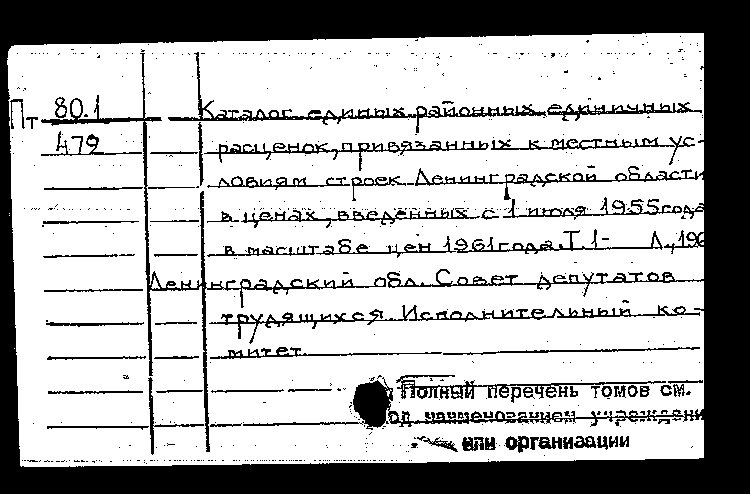 Пт 80.1 Каталог единых районных единичных
479 расценок, привязанных к местным ус-
ловиям строек Ленинградской области
в ценах, введенных с 1 июля 1955 года
в масштабе цен 1961 года. Т. 1- Л., 196
Ленинградский обл. Совет депутатов
трудящихся. Исполнительный ко-
митет.
Полный перечень томов см.
од наименованием учреждени
или организации